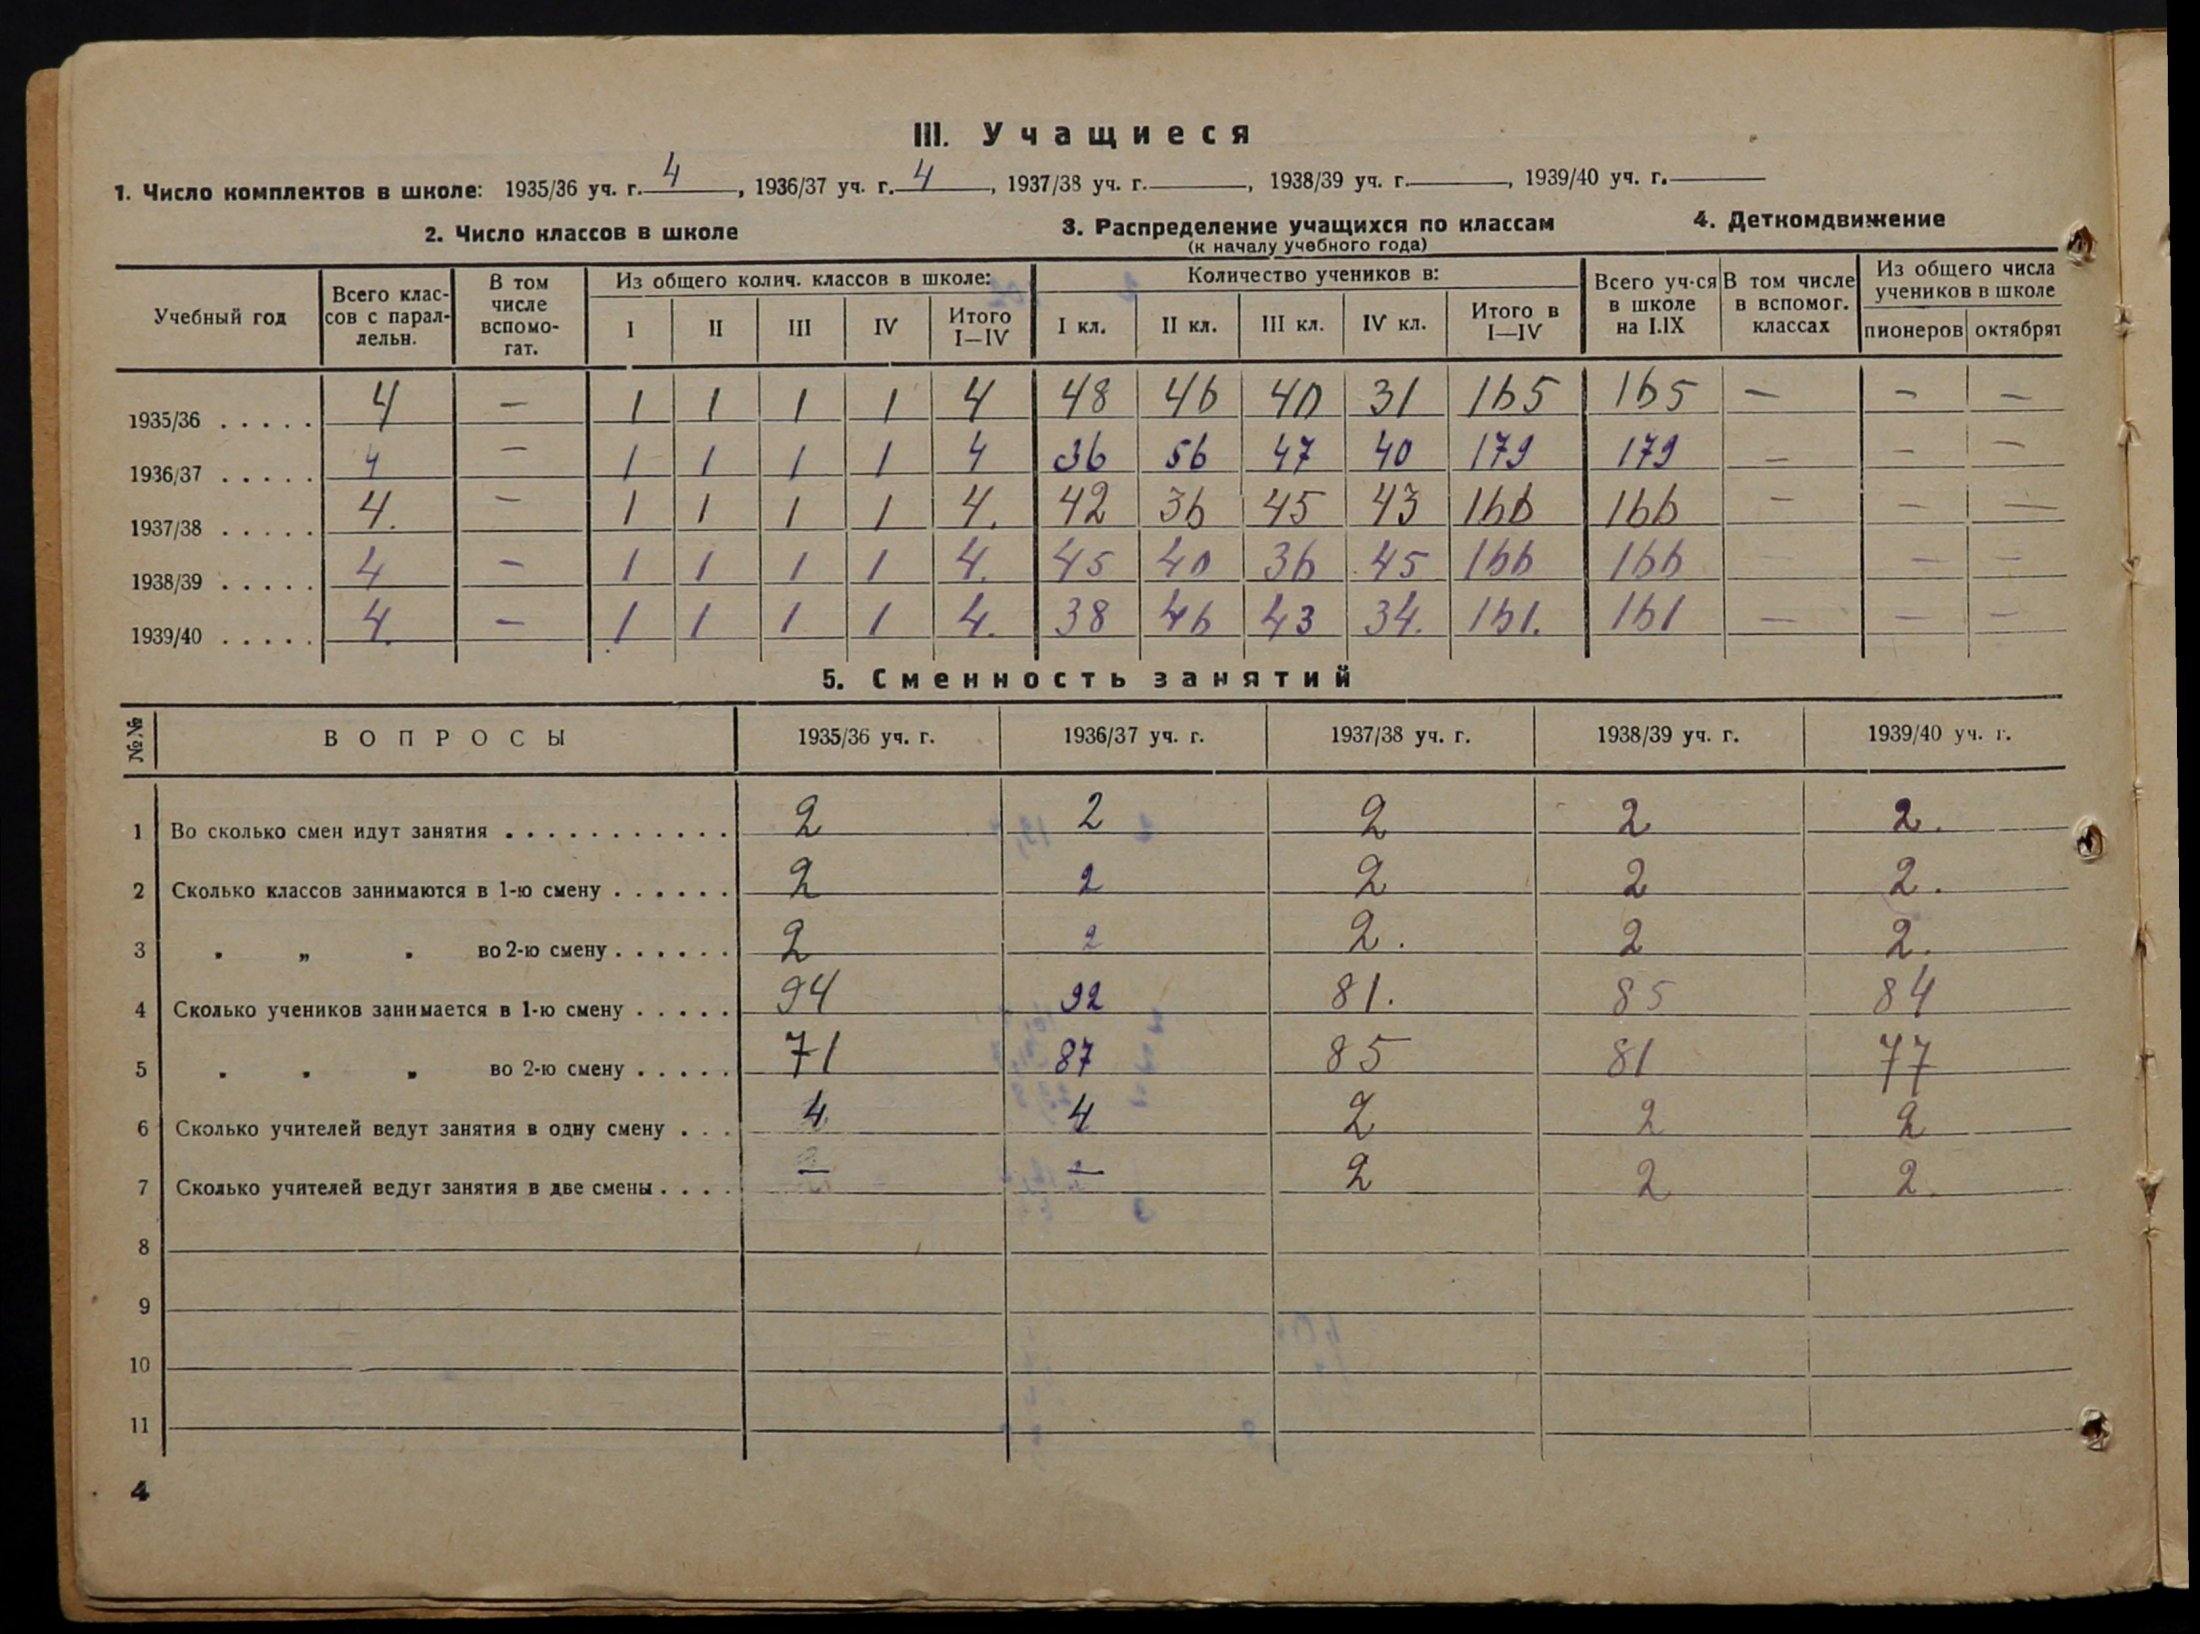 III. Учащиеся
1. Число комплектов в школе: 1935/36 уч. г. 4, 1936/37 уч. г. 4, 1937/38 уч. г. , 1938/39 уч. г. , 1939/40 уч. г.
2. Число классов в школе
3. Распределение учащихся по классам
(к началу учебного года)
4. Деткомдвижение
Учебный год
Всего клас-
сов с парал-
лельн.
В том
числе
вспомо-
гат.
Из общего колич. классов в школе:
I II III IV Итого
I—IV
Количество учеников в:
I кл. II кл. III кл. IV кл. Итого в
I—IV
Всего уч-ся
в школе
на I.IX
В том числе
в вспомог.
классах
Из общего числа
учеников в школе
пионеров октябрят
1935/36 . . . . . 4 — 1 1 1 1 4 48 46 40 31 165 165 — — —
1936/37 . . . . . 4 — 1 1 1 1 4 36 56 47 40 179 179 — — —
1937/38 . . . . . 4. — 1 1 1 1 4. 42 36 45 43 166 166 — — —
1938/39 . . . . . 4 — 1 1 1 1 4. 45 40 36 45 166 166 — —
1939/40 . . . . . 4. — 1 1 1 1 4. 38 46 43 34. 161. 161 — — —
5. Сменность занятий
№№ ВОПРОСЫ 1935/36 уч. г. 1936/37 уч. г. 1937/38 уч. г. 1938/39 уч. г. 1939/40 уч. г.
1 Во сколько смен идут занятия . . . . . . . . . . . 2 2 2 2 2.
2 Сколько классов занимаются в 1-ю смену . . . . . . 2 2 2 2 2.
3 „ „ „ во 2-ю смену . . . . . . 2 2 2. 2 2.
4 Сколько учеников занимается в 1-ю смену . . . . . 94 92 81. 85 84
5 „ „ „ во 2-ю смену . . . . . 71 87 85 81 77
6 Сколько учителей ведут занятия в одну смену . . . 4 4 2 2 2
7 Сколько учителей ведут занятия в две смены . . . . — — 2 2 2.
8
9
10
11
4